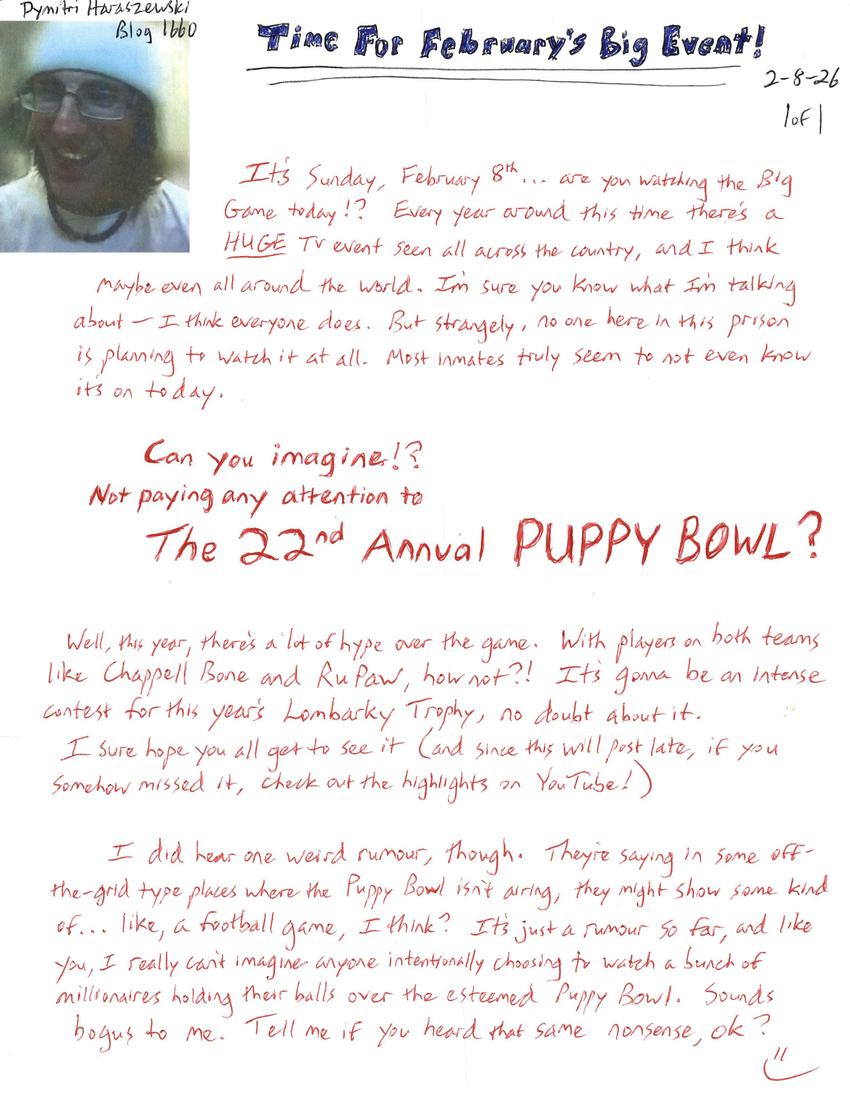 Dymitri Haraszewski
Blog 1660
Time For February's Big Event!
2-8-26
1 of 1
It's Sunday, February 8th... are you watching the Big
Game today!? Every year around this time there's a
HUGE TV event seen all across the country, and I think
maybe even all around the world. I'm sure you know what I'm talking
about — I think everyone does. But strangely, no one here in this prison
is planning to watch it at all. Most inmates truly seem to not even know
it's on today.
Can you imagine!?
Not paying any attention to
The 22nd Annual PUPPY BOWL?
Well, this year, there's a lot of hype over the game. With players on both teams
like Chappell Bone and RuPaw, how not?! It's gonna be an intense
contest for this year's Lombarky Trophy, no doubt about it.
I sure hope you all get to see it (and since this will post late, if you
somehow missed it, check out the highlights on YouTube!)
I did hear one weird rumour, though. They're saying in some off-
the-grid type places where the Puppy Bowl isn't airing, they might show some kind
of... like, a football game, I think? It's just a rumour so far, and like
you, I really can't imagine anyone intentionally choosing to watch a bunch of
millionaires holding their balls over the esteemed Puppy Bowl. Sounds
bogus to me. Tell me if you heard that same nonsense, ok?